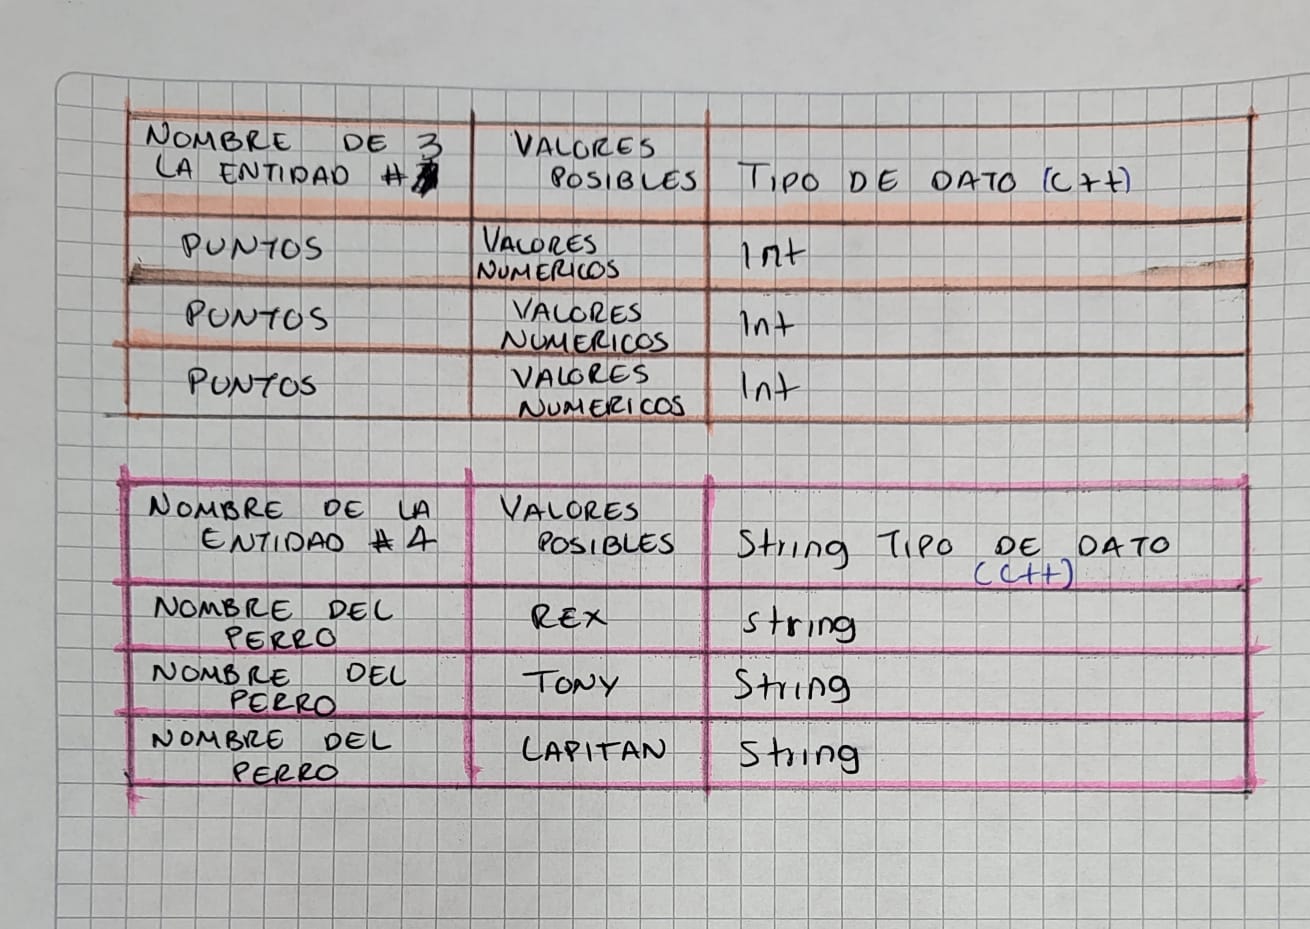 NOMBRE DE 3
LA ENTIDAD #
VALORES
POSIBLES
TIPO DE DATO (C++)
PUNTOS
VALORES
NUMERICOS
Int
PUNTOS
VALORES
NUMERICOS
Int
PUNTOS
VALORES
NUMERICOS
Int
NOMBRE DE LA
ENTIDAD # 4
VALORES
POSIBLES
String TIPO DE DATO
(C++)
NOMBRE DEL
PERRO
REX
string
NOMBRE DEL
PERRO
TONY
String
NOMBRE DEL
PERRO
CAPITAN
String